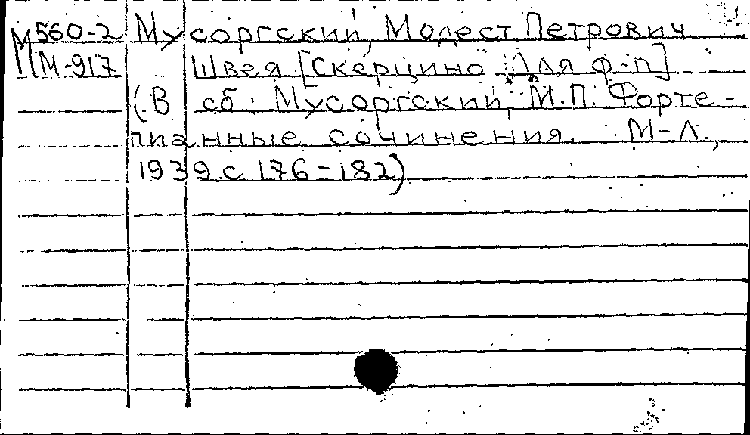 М560-2 Мусоргский, Модест Петрович
М-917 Швея [Скерцино для ф-п]
(В сб: Мусоргский, М.П. Форте-
пианные сочинения. М-Л.,
1939 с. 176-182)